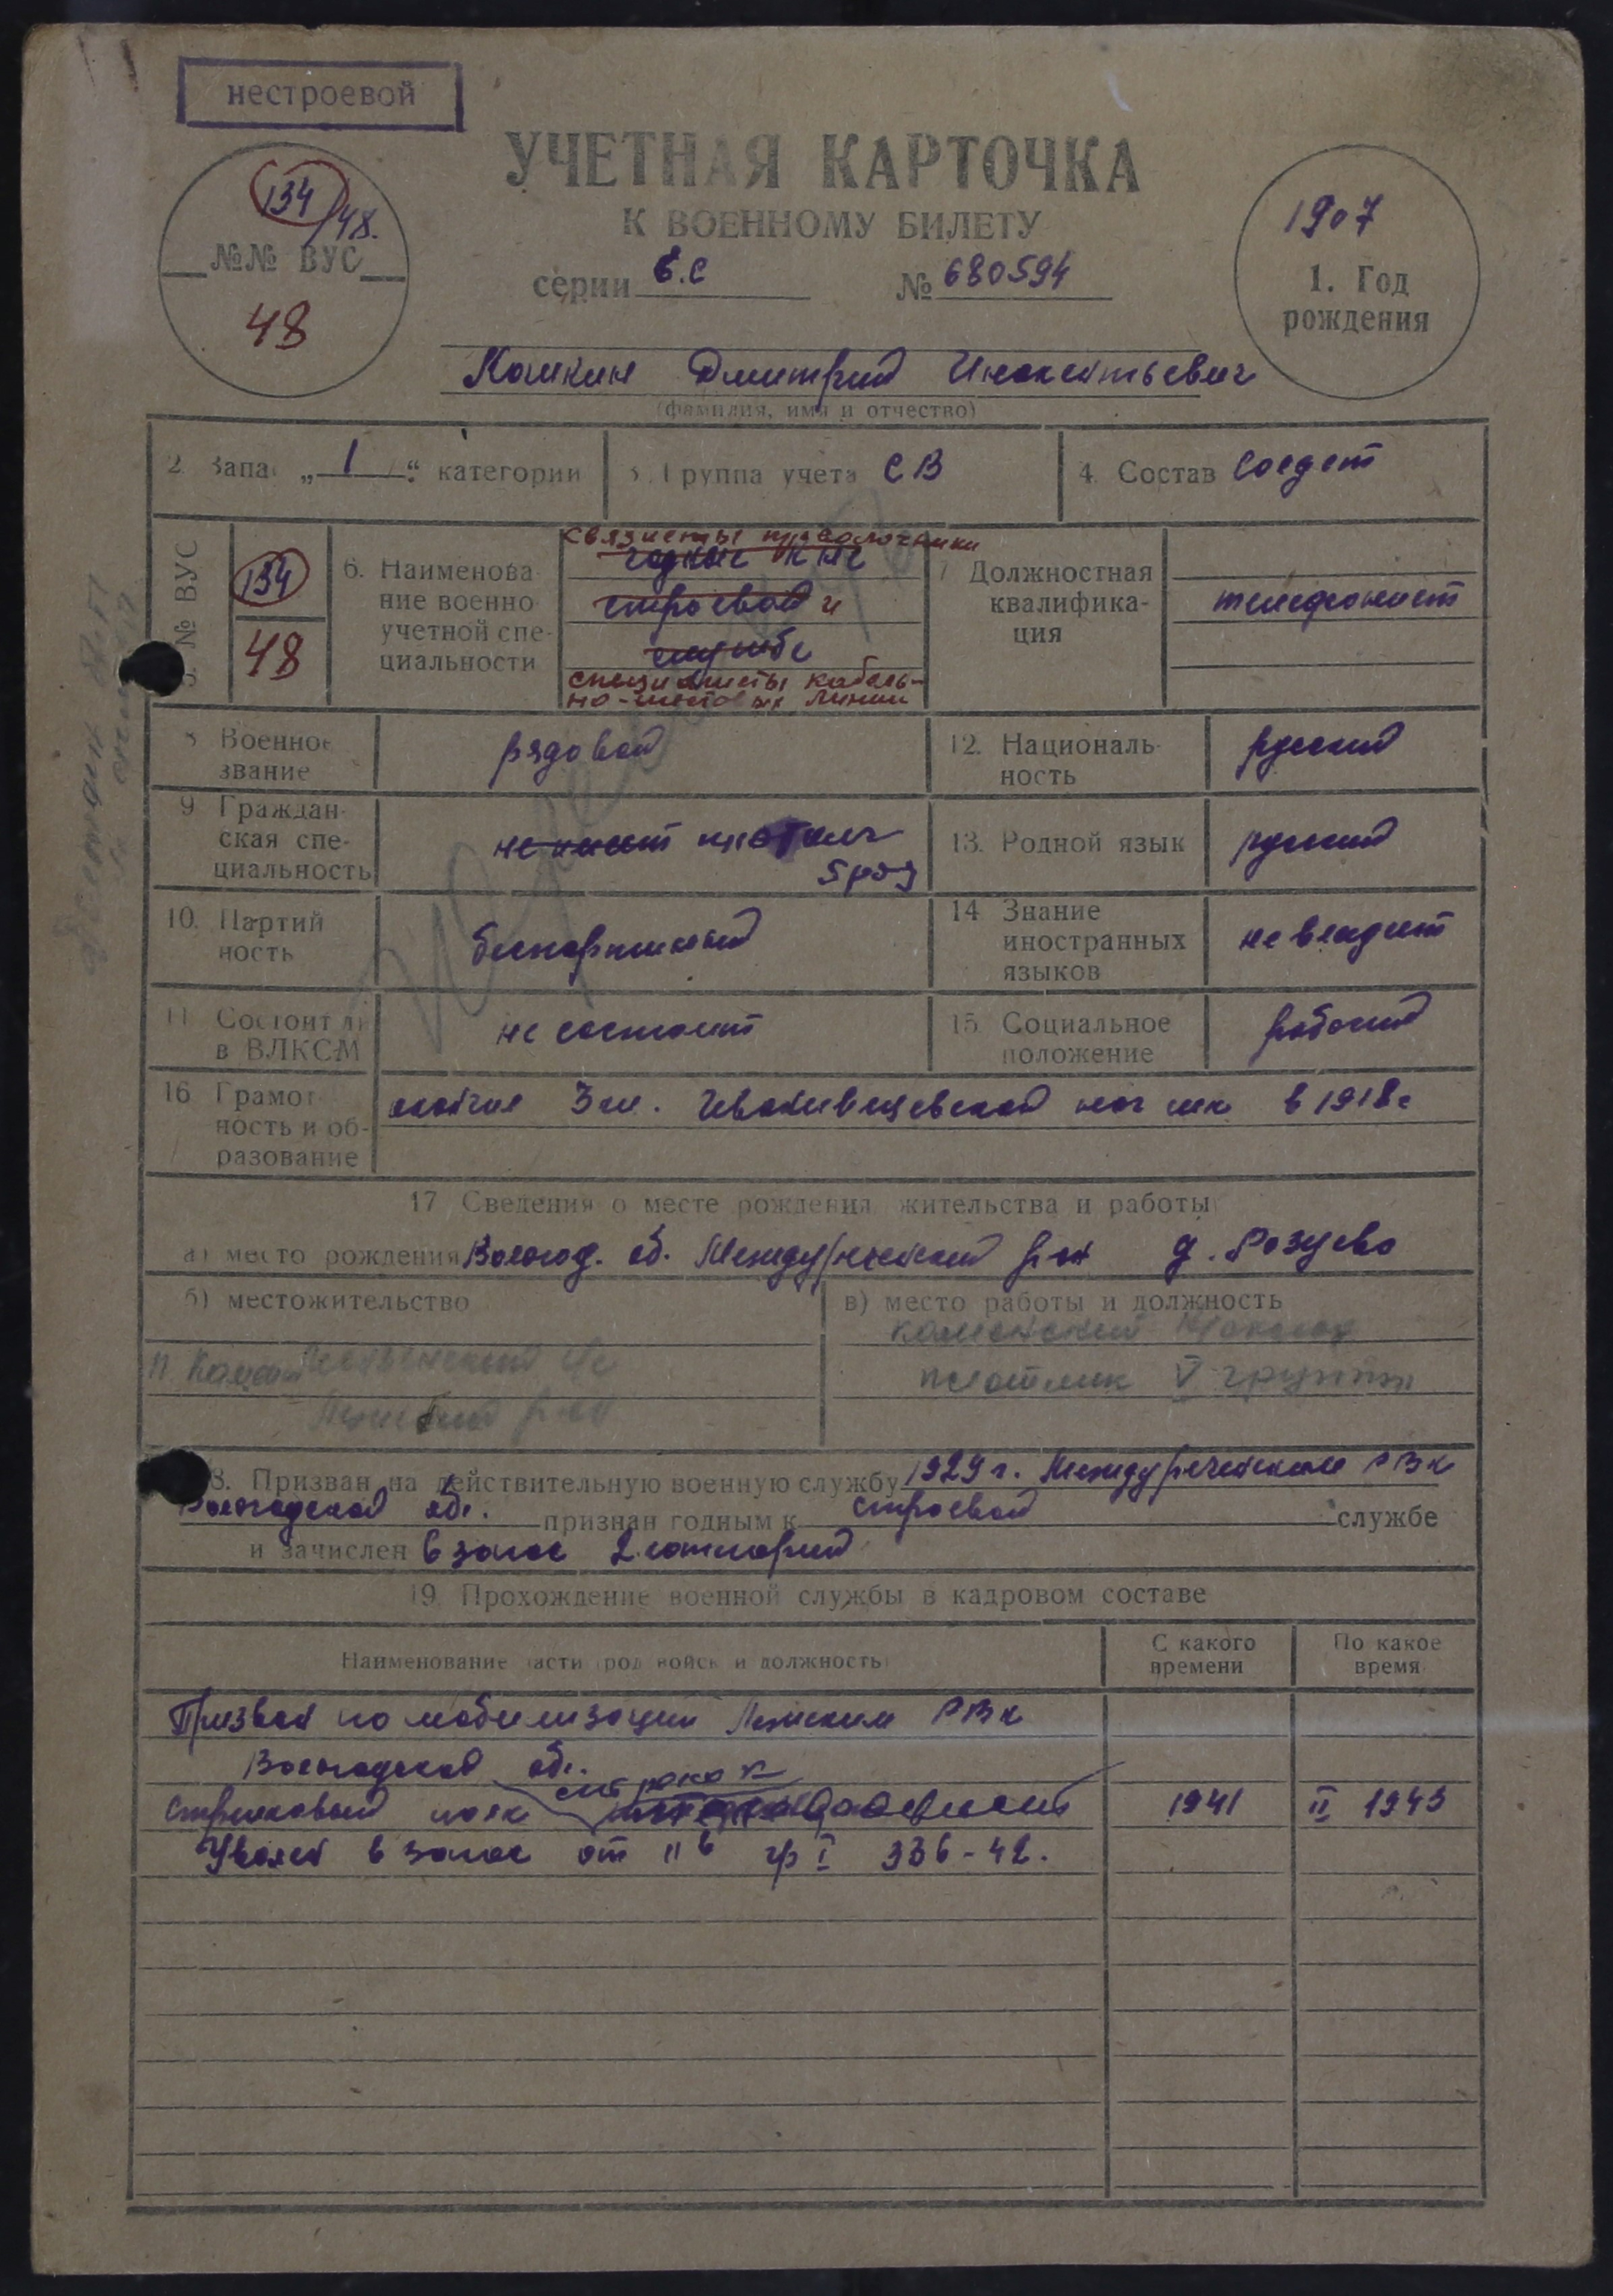 нестроевой
УЧЕТНАЯ КАРТОЧКА
К ВОЕННОМУ БИЛЕТУ
серии Б.С № 680594
134/48.
№№ ВУС
48
1907
1. Год
рождения
Кошкин Дмитрий Инокентьевич
(фамилия, имя и отчество)
2. Запас „1“ категории
3. Группа учета СВ
4. Состав Солдат
5. № ВУС
134
48
6. Наименова-
ние военно-
учетной спе-
циальности
связисты проволочники
годные к не
строевой
службе
специалисты кабель-
но-шестовых линий
7. Должностная
квалифика-
ция
телефонист
8. Военное
звание
рядовой
12. Националь-
ность
русский
9. Граждан-
ская спе-
циальность
не имеет плотник
5 раз
13. Родной язык
русский
10. Партий-
ность
беспартийный
14. Знание
иностранных
языков
не владеет
11. Состоит ли
в ВЛКСМ
не состоит
15. Социальное
положение
рабочий
16. Грамот-
ность и об-
разование
окончил 3 кл. нач шк в 1918г
17. Сведения о месте рождения, жительства и работы
а) место рождения Вологод. об. Междуреченский р-он д. Розуево
б) местожительство
в) место работы и должность
плотник V группы
18. Призван на действительную военную службу 1929 г. Междуреченским РВК
Вологодской обл. признан годным к строевой службе
и зачислен в запас 2 категории
19. Прохождение военной службы в кадровом составе
Наименование части, род войск и должность
С какого
времени
По какое
время
Призван по мобилизации Лежским РВК
Вологодской обл.
стрелковый полк 1941 II 1943
Уволен в запас от 11б гр I 336-42.